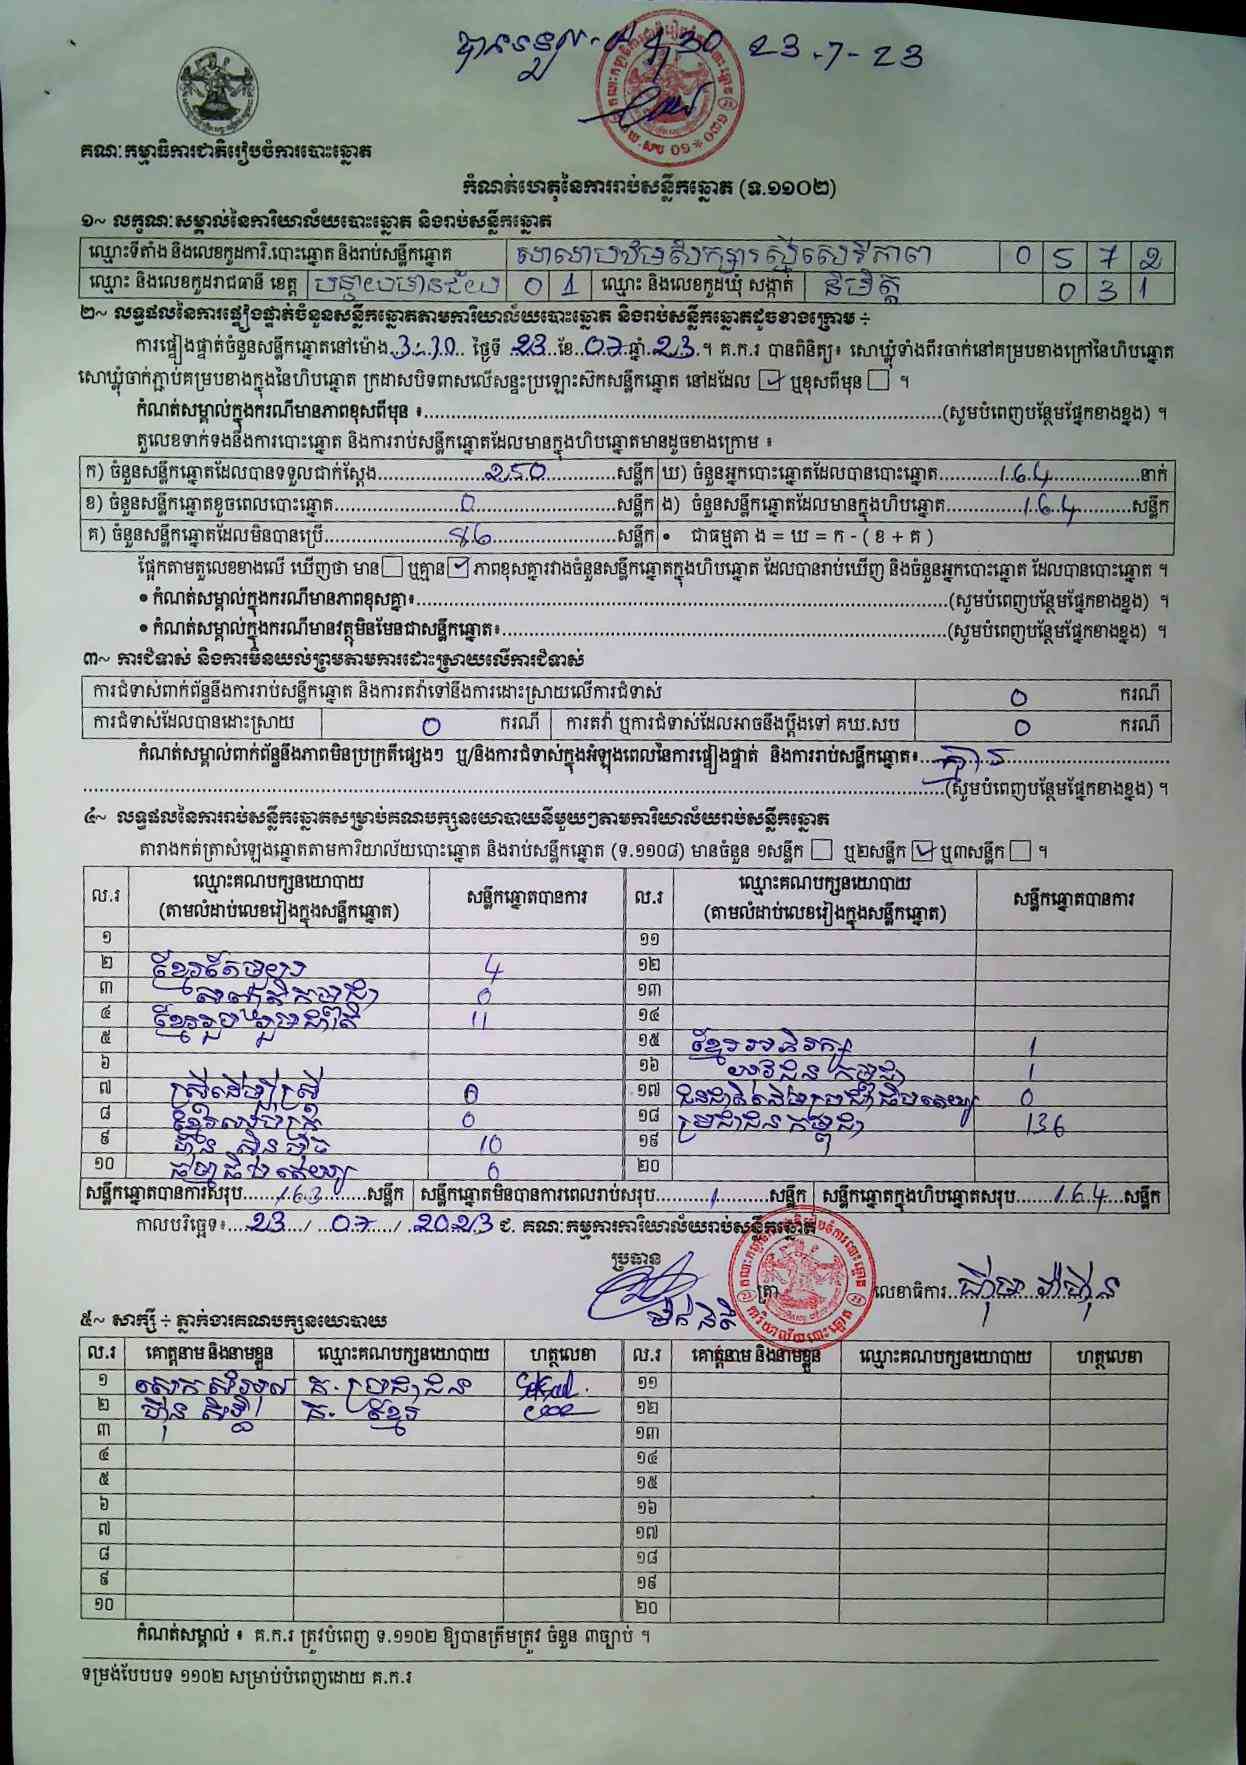 បានទទួល 4/30 23-7-23
គណៈកម្មាធិការជាតិរៀបចំការបោះឆ្នោត
កំណត់ហេតុនៃការរាប់សន្លឹកឆ្នោត (ទ.១១០២)
១~ លក្ខណៈសម្គាល់នៃការិយាល័យបោះឆ្នោត និងរាប់សន្លឹកឆ្នោត
ឈ្មោះទីតាំង និងលេខកូដការិ.បោះឆ្នោត និងរាប់សន្លឹកឆ្នោត សាលាបឋមសិក្សារស្មីសេរីភាព 0 5 7 2
ឈ្មោះ និងលេខកូដរាជធានី ខេត្ត បន្ទាយមានជ័យ 0 1 ឈ្មោះ និងលេខកូដឃុំ សង្កាត់ និមិត្ត 0 3 1
២~ លទ្ធផលនៃការផ្ទៀងផ្ទាត់ចំនួនសន្លឹកឆ្នោតតាមការិយាល័យបោះឆ្នោត និងរាប់សន្លឹកឆ្នោតដូចខាងក្រោម ÷
ការផ្ទៀងផ្ទាត់ចំនួនសន្លឹកឆ្នោតនៅម៉ោង 3:30 ថ្ងៃទី 23 ខែ 07 ឆ្នាំ 23 ។ គ.ក.រ បានពិនិត្យ៖ សោឃ្លុំទាំងពីរចាក់នៅគម្របខាងក្រៅនៃហិបឆ្នោត
សោឃ្លុំចាក់ភ្ជាប់គម្របខាងក្នុងនៃហិបឆ្នោត ក្រដាសបិទពាសលើសន្ទះប្រឡោះស៊កសន្លឹកឆ្នោត នៅដដែល ☑ ឬខុសពីមុន ☐ ។
កំណត់សម្គាល់ក្នុងករណីមានភាពខុសពីមុន ៖ (សូមបំពេញបន្ថែមផ្នែកខាងខ្នង) ។
តួលេខទាក់ទងនឹងការបោះឆ្នោត និងការរាប់សន្លឹកឆ្នោតដែលមានក្នុងហិបឆ្នោតមានដូចខាងក្រោម ៖
ក) ចំនួនសន្លឹកឆ្នោតដែលបានទទួលជាក់ស្តែង 250 សន្លឹក ឃ) ចំនួនអ្នកបោះឆ្នោតដែលបានបោះឆ្នោត 164 នាក់
ខ) ចំនួនសន្លឹកឆ្នោតខូចពេលបោះឆ្នោត 0 សន្លឹក ង) ចំនួនសន្លឹកឆ្នោតដែលមានក្នុងហិបឆ្នោត 164 សន្លឹក
គ) ចំនួនសន្លឹកឆ្នោតដែលមិនបានប្រើ 86 សន្លឹក • ជាធម្មតា ង = ឃ = ក - ( ខ + គ )
ផ្អែកតាមតួលេខខាងលើ ឃើញថា មាន ☐ ឬគ្មាន ☑ ភាពខុសគ្នារវាងចំនួនសន្លឹកឆ្នោតក្នុងហិបឆ្នោត ដែលបានរាប់ឃើញ និងចំនួនអ្នកបោះឆ្នោត ដែលបានបោះឆ្នោត ។
• កំណត់សម្គាល់ក្នុងករណីមានភាពខុសគ្នា៖ (សូមបំពេញបន្ថែមផ្នែកខាងខ្នង) ។
• កំណត់សម្គាល់ក្នុងករណីមានវត្ថុមិនមែនជាសន្លឹកឆ្នោត៖ (សូមបំពេញបន្ថែមផ្នែកខាងខ្នង) ។
៣~ ការជំទាស់ និងការមិនយល់ព្រមតាមការដោះស្រាយលើការជំទាស់
ការជំទាស់ពាក់ព័ន្ធនឹងការរាប់សន្លឹកឆ្នោត និងការតវ៉ាទៅនឹងការដោះស្រាយលើការជំទាស់ 0 ករណី
ការជំទាស់ដែលបានដោះស្រាយ 0 ករណី ការតវ៉ា ឬការជំទាស់ដែលអាចនឹងប្តឹងទៅ គឃ.សប 0 ករណី
កំណត់សម្គាល់ពាក់ព័ន្ធនឹងភាពមិនប្រក្រតីផ្សេងៗ ឬ/និងការជំទាស់ក្នុងអំឡុងពេលនៃការផ្ទៀងផ្ទាត់ និងការរាប់សន្លឹកឆ្នោត៖ គ្មាន
(សូមបំពេញបន្ថែមផ្នែកខាងខ្នង) ។
៤~ លទ្ធផលនៃការរាប់សន្លឹកឆ្នោតសម្រាប់គណបក្សនយោបាយនីមួយៗតាមការិយាល័យរាប់សន្លឹកឆ្នោត
តារាងកត់ត្រាសំឡេងឆ្នោតតាមការិយាល័យបោះឆ្នោត និងរាប់សន្លឹកឆ្នោត (ទ.១១០៨) មានចំនួន ១សន្លឹក ☐ ឬ២សន្លឹក ☑ ឬ៣សន្លឹក ☐ ។
ល.រ ឈ្មោះគណបក្សនយោបាយ (តាមលំដាប់លេខរៀងក្នុងសន្លឹកឆ្នោត) សន្លឹកឆ្នោតបានការ ល.រ ឈ្មោះគណបក្សនយោបាយ (តាមលំដាប់លេខរៀងក្នុងសន្លឹកឆ្នោត) សន្លឹកឆ្នោតបានការ
១ ១១
២ ខ្មែរតែមួយ 4 ១២
៣ សញ្ជាតិកម្ពុជា 0 ១៣
៤ ខ្មែររួបរួមជាតិ 11 ១៤
៥ ១៥ ខ្មែរអភិរក្ស 1
៦ ១៦ យុវជន កម្ពុជា 1
៧ ស្ត្រីដើម្បីស្ត្រី 0 ១៧ ជនជាតិដើមប្រជាធិបតេយ្យ 0
៨ 0 ១៨ ប្រជាជនកម្ពុជា 136
៩ ហ៊្វុន ស៊ិន ប៉ិច 10 ១៩
១០ ធម្មាធិបតេយ្យ 0 ២០
សន្លឹកឆ្នោតបានការសរុប 163 សន្លឹក សន្លឹកឆ្នោតមិនបានការពេលរាប់សរុប 1 សន្លឹក សន្លឹកឆ្នោតក្នុងហិបឆ្នោតសរុប 164 សន្លឹក
កាលបរិច្ឆេទ៖ 23 / 07 / 2023 ៩. គណៈកម្មការការិយាល័យរាប់សន្លឹកឆ្នោត
ប្រធាន
ត្រា លេខាធិការ
៥~ សាក្សី ÷ ភ្នាក់ងារគណបក្សនយោបាយ
ល.រ គោត្តនាម និងនាមខ្លួន ឈ្មោះគណបក្សនយោបាយ ហត្ថលេខា ល.រ គោត្តនាម និងនាមខ្លួន ឈ្មោះគណបក្សនយោបាយ ហត្ថលេខា
១ គ. ប្រជាជន ១១
២ គ. ខ្មែរ ១២
៣ ១៣
៤ ១៤
៥ ១៥
៦ ១៦
៧ ១៧
៨ ១៨
៩ ១៩
១០ ២០
កំណត់សម្គាល់ ៖ គ.ក.រ ត្រូវបំពេញ ទ.១១០២ ឱ្យបានត្រឹមត្រូវ ចំនួន ៣ច្បាប់ ។
ទម្រង់បែបបទ ១១០២ សម្រាប់បំពេញដោយ គ.ក.រ